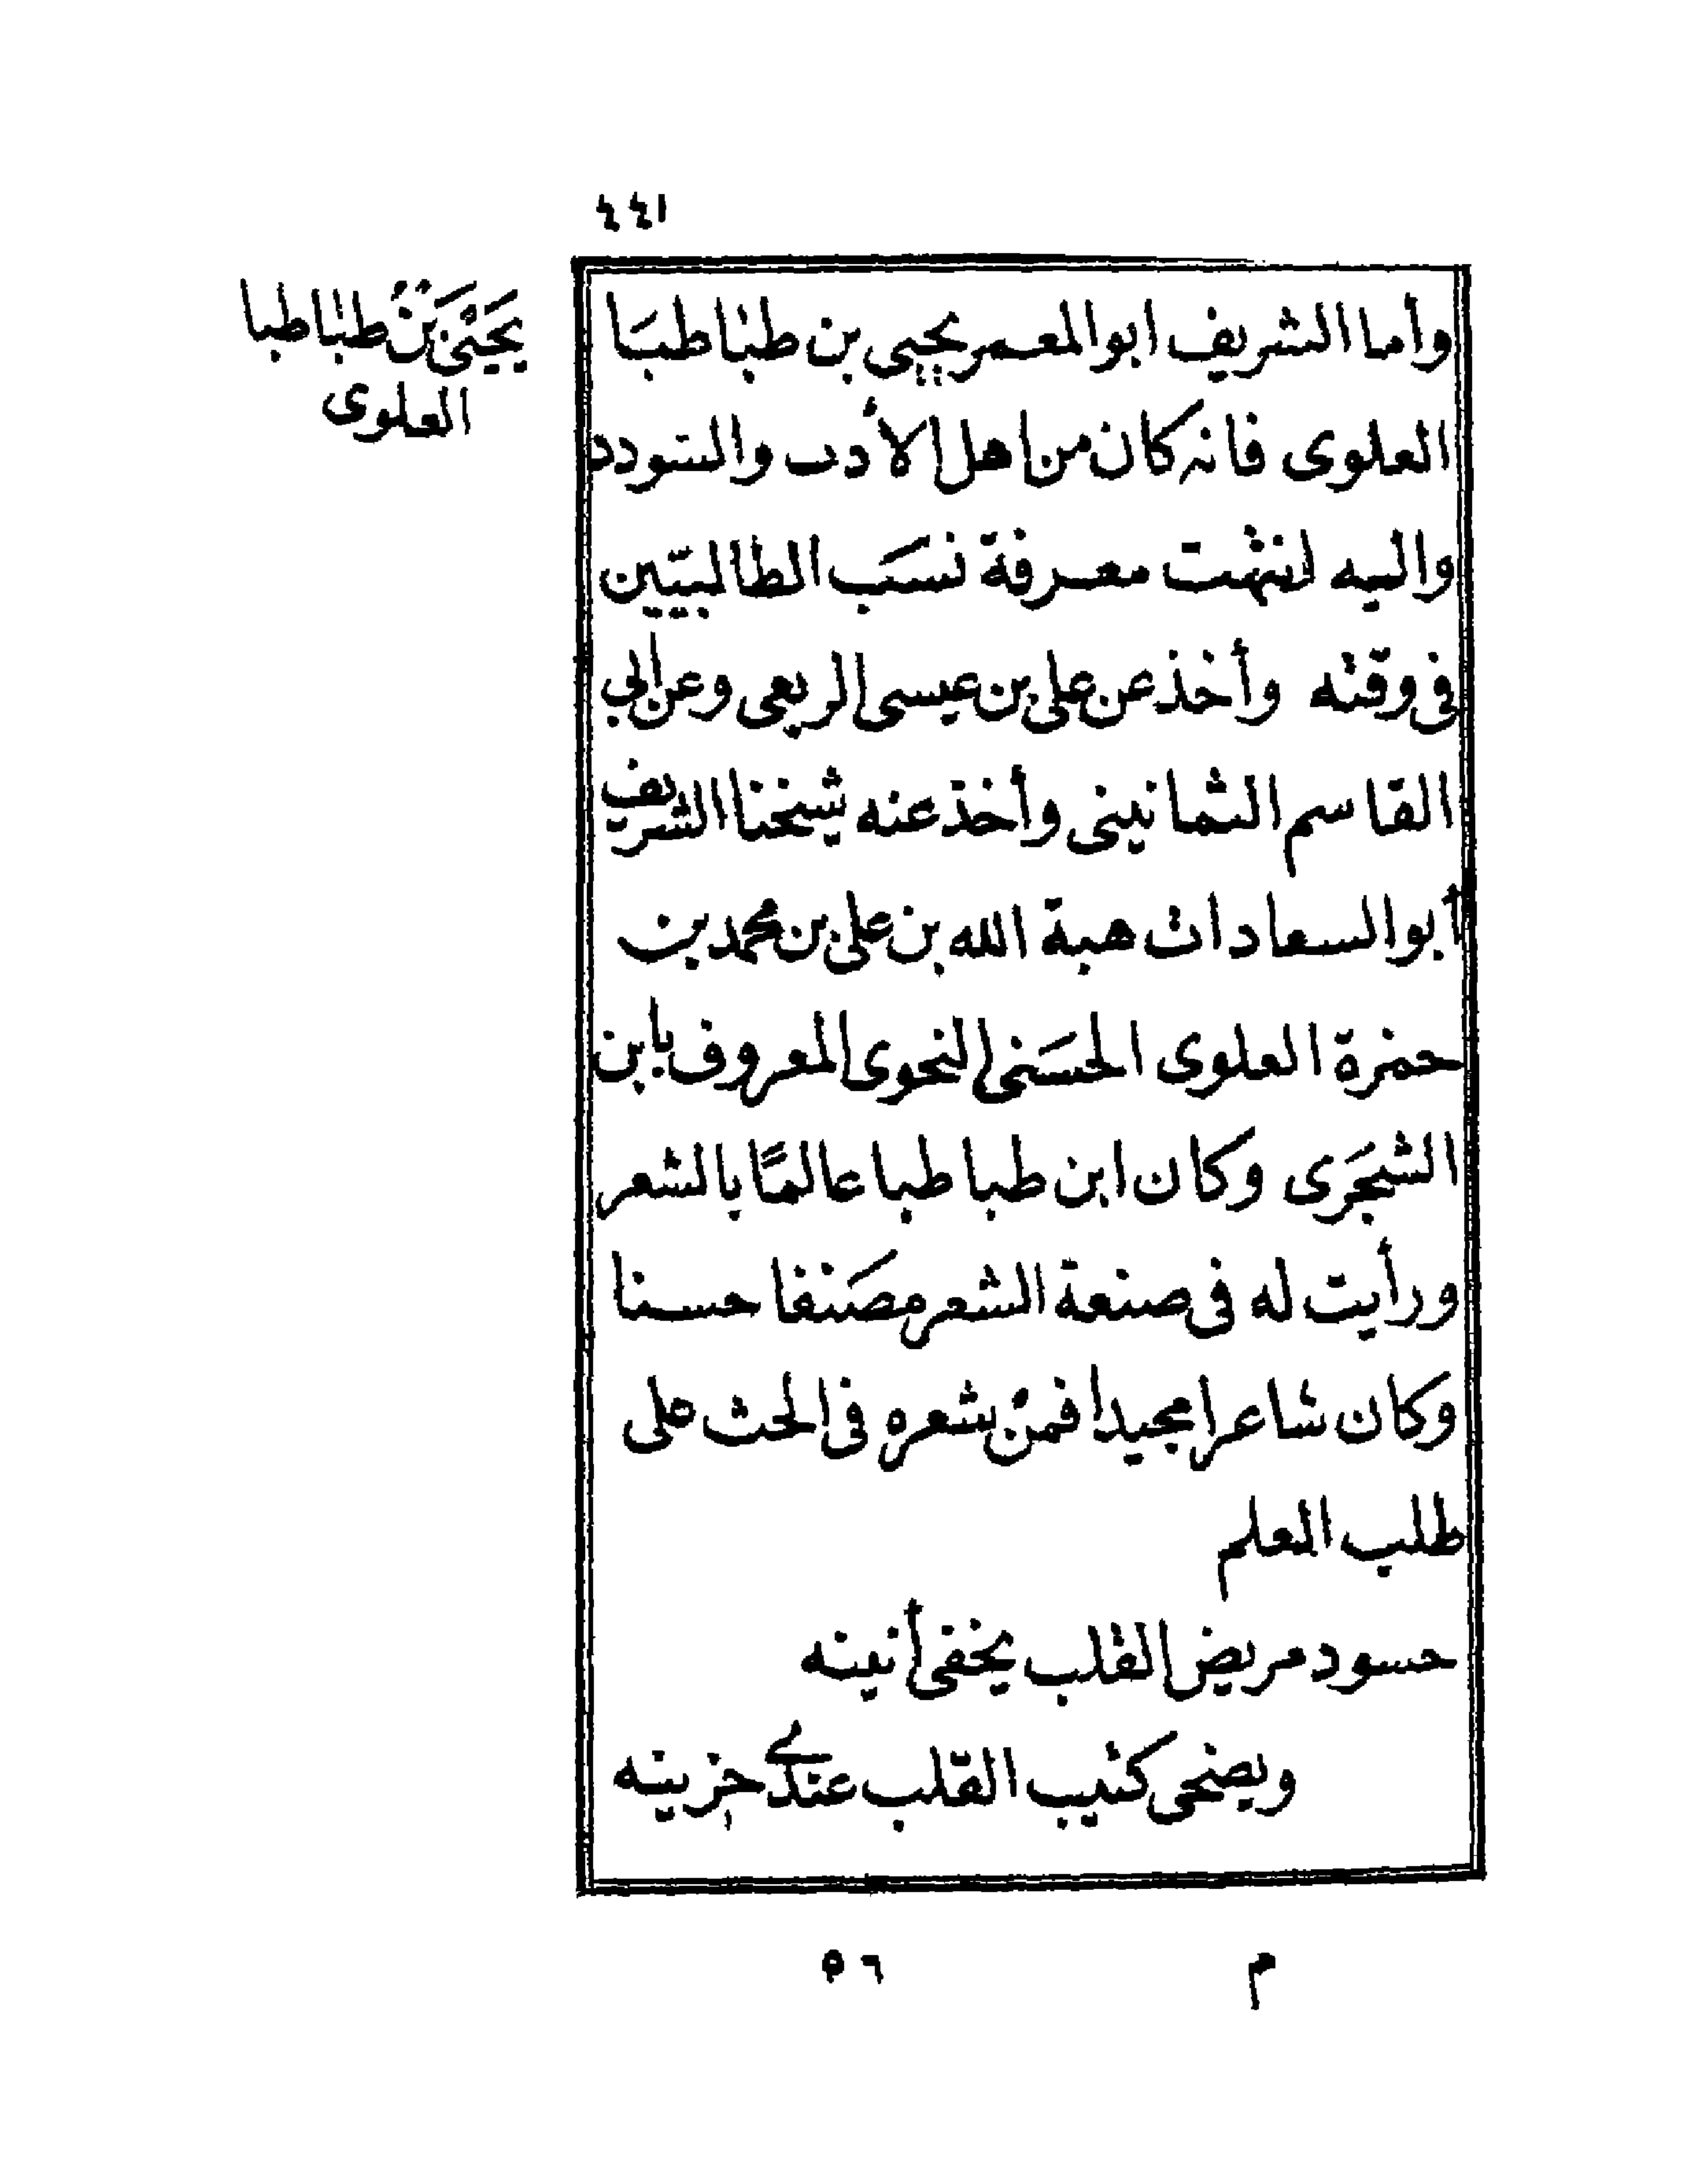 ٤٤١
يَحْيَى بْنُ طباطبا
العلوى
وأما الشريف ابو المعمر يحيى بن طباطبَا
العلوى فانه كان من اهل الأدب والسودد
واليه انتهت معرفة نسَب الطالبيّين
فى وقته وأخذ عن على بن عيسى الربعى وعن أبي
القاسم الثمانينى وأخذ عنه شيخنا الشريف
أبو السعادات هبة الله بن على بن محمد بن
حمزة العلوى الحسَنى النحوى المعروف بابن
الشجَرى وكان ابن طباطبا عالمًا بالشعر
ورأيت له فى صنعة الشعر مصَنفا حسنا
وكان شاعرا مجيدا فمنْ شعره فى الحث على
طلب العلم
حسود مريض القلب يخفى أنينه
ويضحى كئيب القلب عندى حزينه
م ٥٦